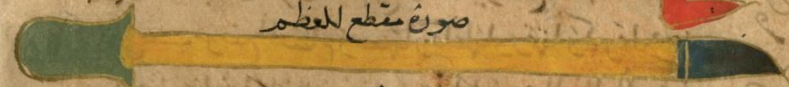 صورة مقطع للعظم